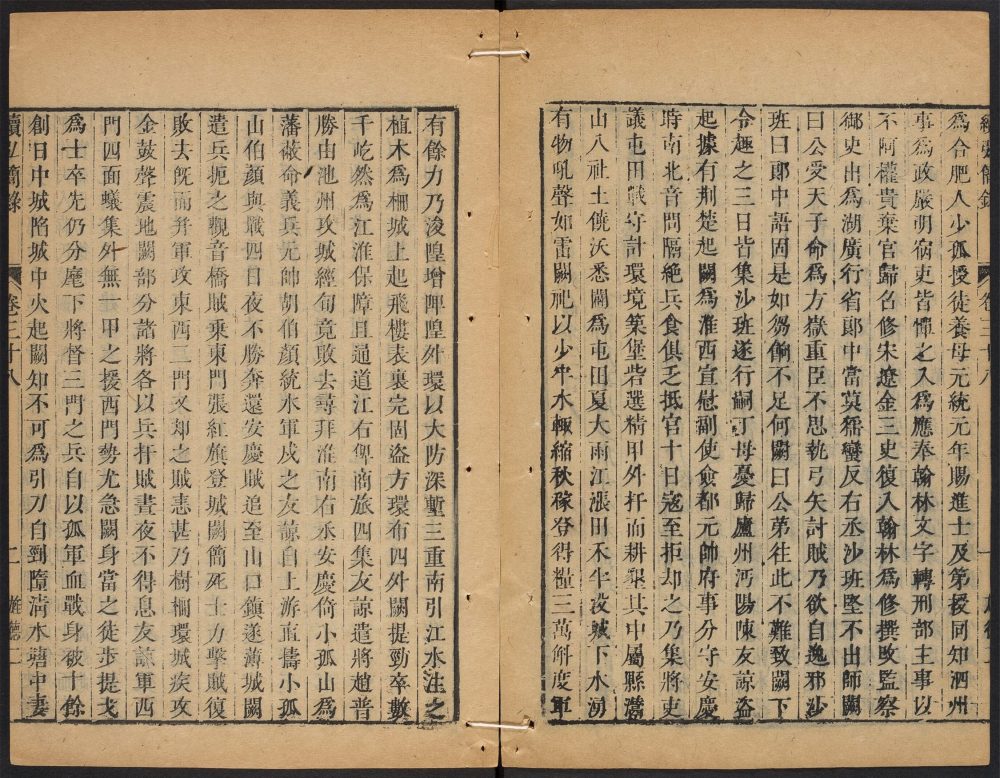 為合肥人少孤授徒養母元統元年賜進士及第授同知泗州
事為政嚴明宿吏皆憚之入為應奉翰林文字轉刑部主事以
不阿權貴棄官歸召修宋遼金三史復入翰林為修撰改監察
御史出為湖廣行省郎中當莫猺蠻反右丞沙班堅不出師闕
曰公受天子命為方嶽重臣不思執弓矢討賊乃欲自逸邪沙
班曰郎中語固是如芻餉不足何闕曰公第往此不難致闕下
令趣之三日皆集沙班遂行嗣丁母憂歸廬州沔陽陳友諒盜
起據有荆楚起闕為淮西宣慰副使僉都元帥府事分守安慶
時南北音問隔絶兵食俱乏抵官十日寇至拒却之乃集將吏
議屯田戰守計環境築堡砦選精甲外扞而耕稼其中屬縣灊
山八社土饒沃悉闢為屯田夏大雨江漲田禾半沒城下水湧
有物吼聲如雷闕祀以少牢水輒縮秋稼登得糧三萬斛度軍
續弘簡錄 卷三十八
有餘力乃浚隍增陴隍外環以大防深塹三重南引江水注之
植木為柵城上起飛樓表裏完固盗方環布四外闕提勁卒數
千屹然為江淮保障且通道江右俾商旅四集友諒遣將趙普
勝由池州攻城經旬竟敗去尋拜淮南右丞安慶倚小孤山為
藩蔽命義兵元帥胡伯顏統水軍戍之友諒自上游直擣小孤
山伯顏與戰四日夜不勝奔還安慶賊追至山口鎮遂薄城闕
遣兵扼之觀音橋賊乘東門張紅旗登城闕簡死士力擊賊復
敗去既而并軍攻東西二門又却之賊恚甚乃樹柵環城疾攻
金鼓聲震地闕部分諸將各以兵扞賊晝夜不得息友諒軍西
門四面蟻集外無一甲之援西門勢尤急闕身當之徒步提戈
為士卒先仍分麾下將督三門之兵自以孤軍血戰身被十餘
創日中城陷城中火起闕知不可為引刀自剄墮清水塘中妻
續弘簡錄 卷三十八 二